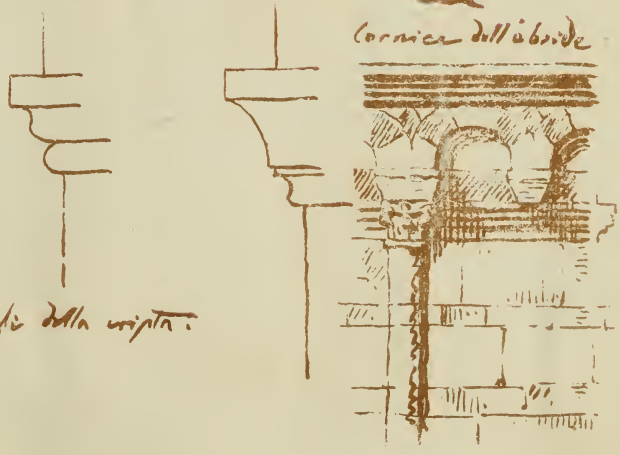 Cornice dell'abside
della cripta.